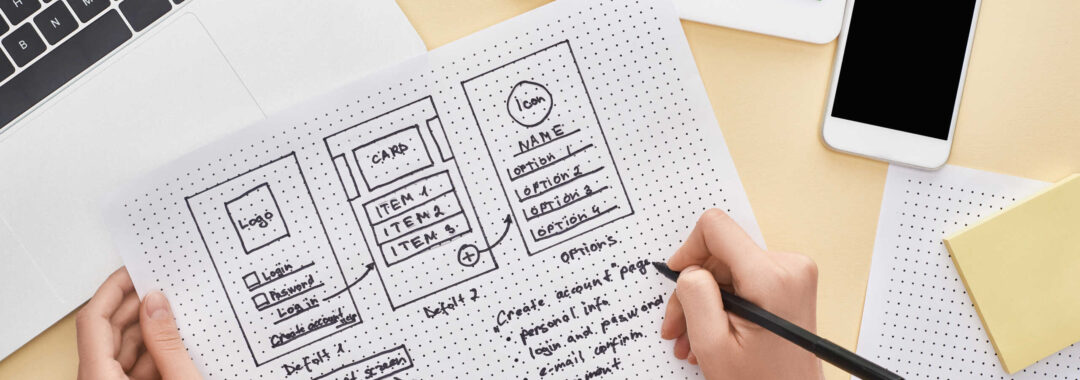 B
N
M
Logo
Login
Password
Log in
Create account
Defolt 1
CARD
ITEM 1
ITEM 2
ITEM 3
+
Defolt 2
Icon
NAME
OPTION 1
OPTION 2
OPTION 3
OPTION 4
OPTIONS
"Create account" page
• personal info
• login and password
• e-mail confirm
screen